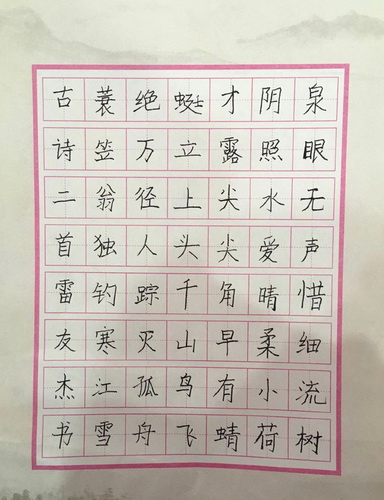 泉眼无声惜细流树
阴照水爱晴柔小荷
才露尖尖角早有蜻
蜓立上头千山鸟飞
绝万径人踪灭孤舟
蓑笠翁独钓寒江雪
古诗二首雷友杰书